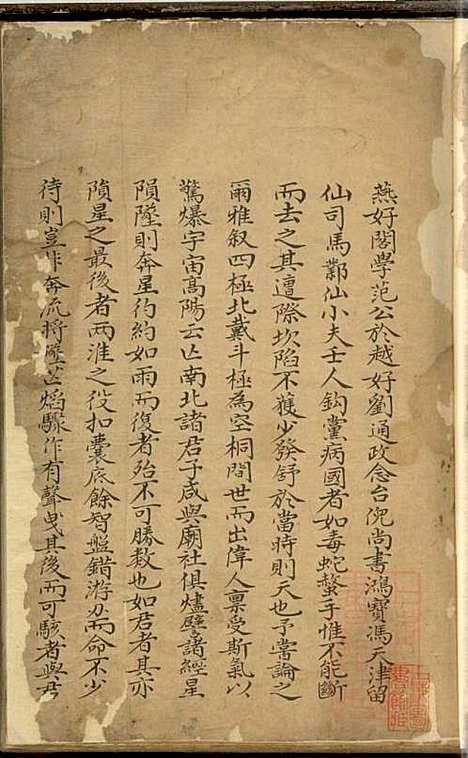 燕好閣學范公於越好劉通政念台倪尚書鴻寶馮天津留
仙司馬鄴仙小夫士人鈎黨病國者如毒蛇螫手惟不能斷
而去之其遭際坎陷不獲少發舒於當時則天也予嘗論之
爾雅叙四極北戴斗極為空桐間世而出偉人禀受斯氣以
驚爆宇宙高陽云亡南北諸君子咸與廟社俱燼譬諸經星
隕墜則奔星彴約如雨而復者殆不可勝数也如君者其亦
隕星之最後者兩淮之役扣囊底餘智盤錯游刃而命不少
待則豈非奔流將墜芒焰騤作有聲曳其後而可駭者與君